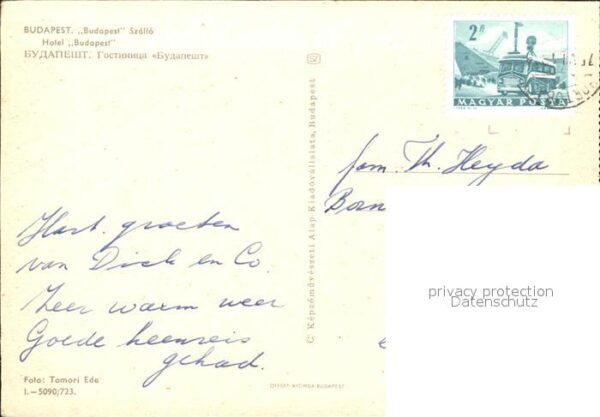 BUDAPEST. „Budapest" Szálló
Hotel „Budapest"
БУДАПЕШТ. Гостиница «Будапешт»
2 Ft
MAGYAR POSTA
fam. Th. Heyda
Born
Hart. groeten
van Dick en Co.
Zeer warm weer
Goede heenreis
gehad.
© Képzőművészeti Alap Kiadóvállalata, Budapest
privacy protection
Datenschutz
Foto: Tamori Ede
I.—5090/723.
OFFSET-NYOMDA BUDAPEST